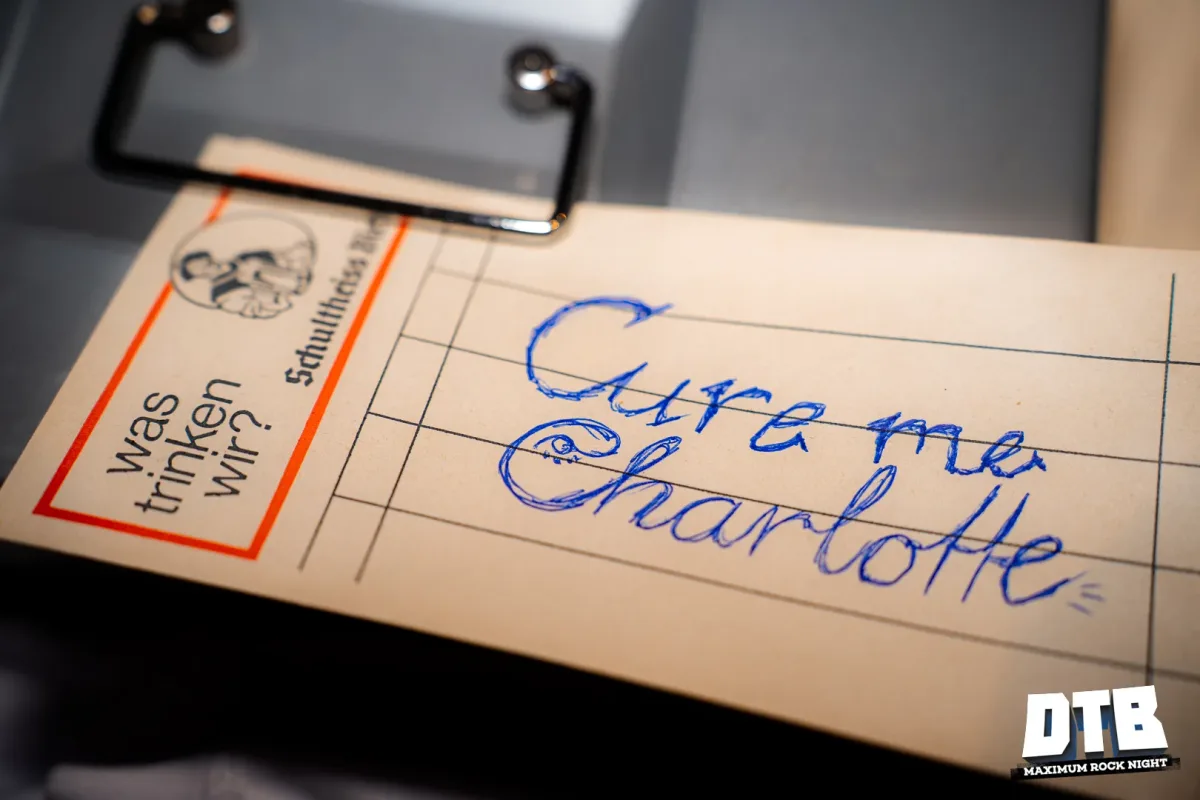 was
trinken
wir?
Schultheiss Bier
Cure me
Charlotte
DTB
MAXIMUM ROCK NIGHT